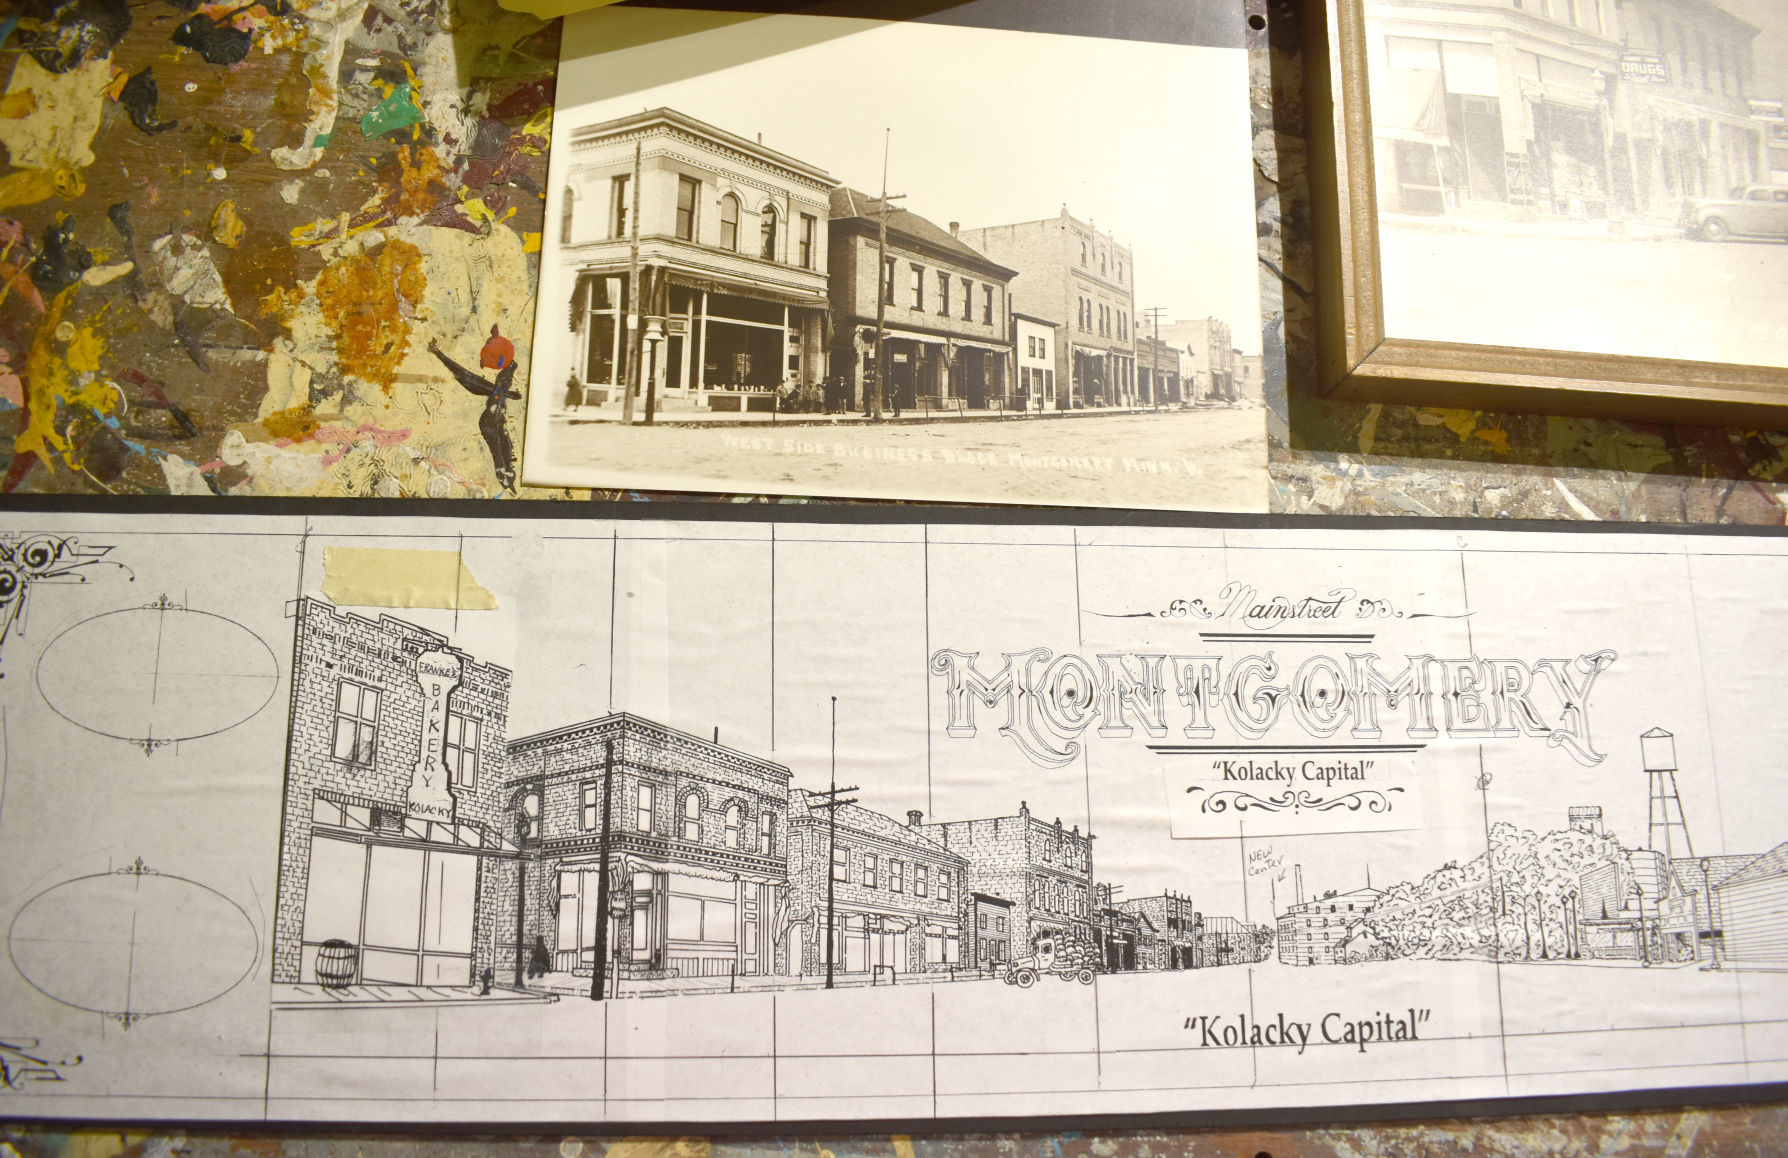 DRUGS
WEST SIDE BUSINESS BLOCK MONTGOMERY MINN. 6.
Mainstreet
MONTGOMERY
"Kolacky Capital"
FRANKE'S
BAKERY
KOLACKY
NEW
Center
"Kolacky Capital"